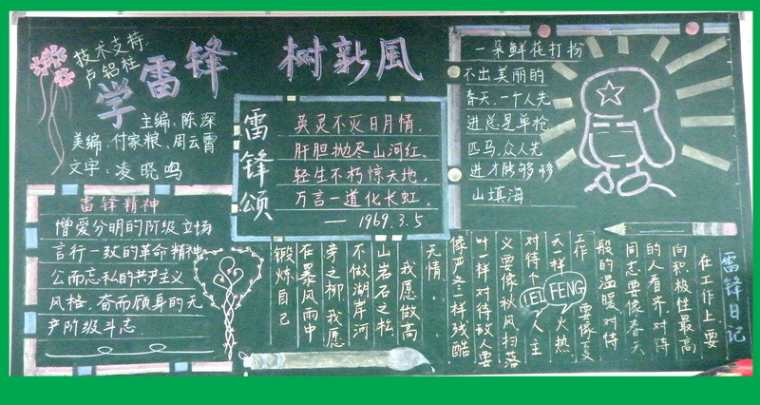 技术支持:
卢铝柱
学雷锋 树新風
主编:陈深
美编:付家粮、周云霄
文字:凌晓鸣
雷锋颂
英灵不灭日月情,
肝胆抛尽山河红,
轻生不朽惊天地,
万言一道化长虹,
——1969.3.5
一朵鲜花打扮
不出美丽的
春天,一个人先
进总是单枪
匹马,众人先
进才能够移
山填海
雷锋精神
憎爱分明的阶级立场
言行一致的革命精神
公而忘私的共产主义
风格,奋而顾身的无
产阶级斗志
雷锋日记
在工作上要
向积极性最高
的人看齐,对待
同志要像春天
般的温暖,对待
工作 要像夏
天一样 火热
对待个 人主
义要像秋风扫落
叶一样,对待敌人要
像严冬一样残酷
无情,
我愿做高
山岩石之松
不做湖岸河
旁之柳,我愿
在暴风雨中
锻炼自己
LEI FENG